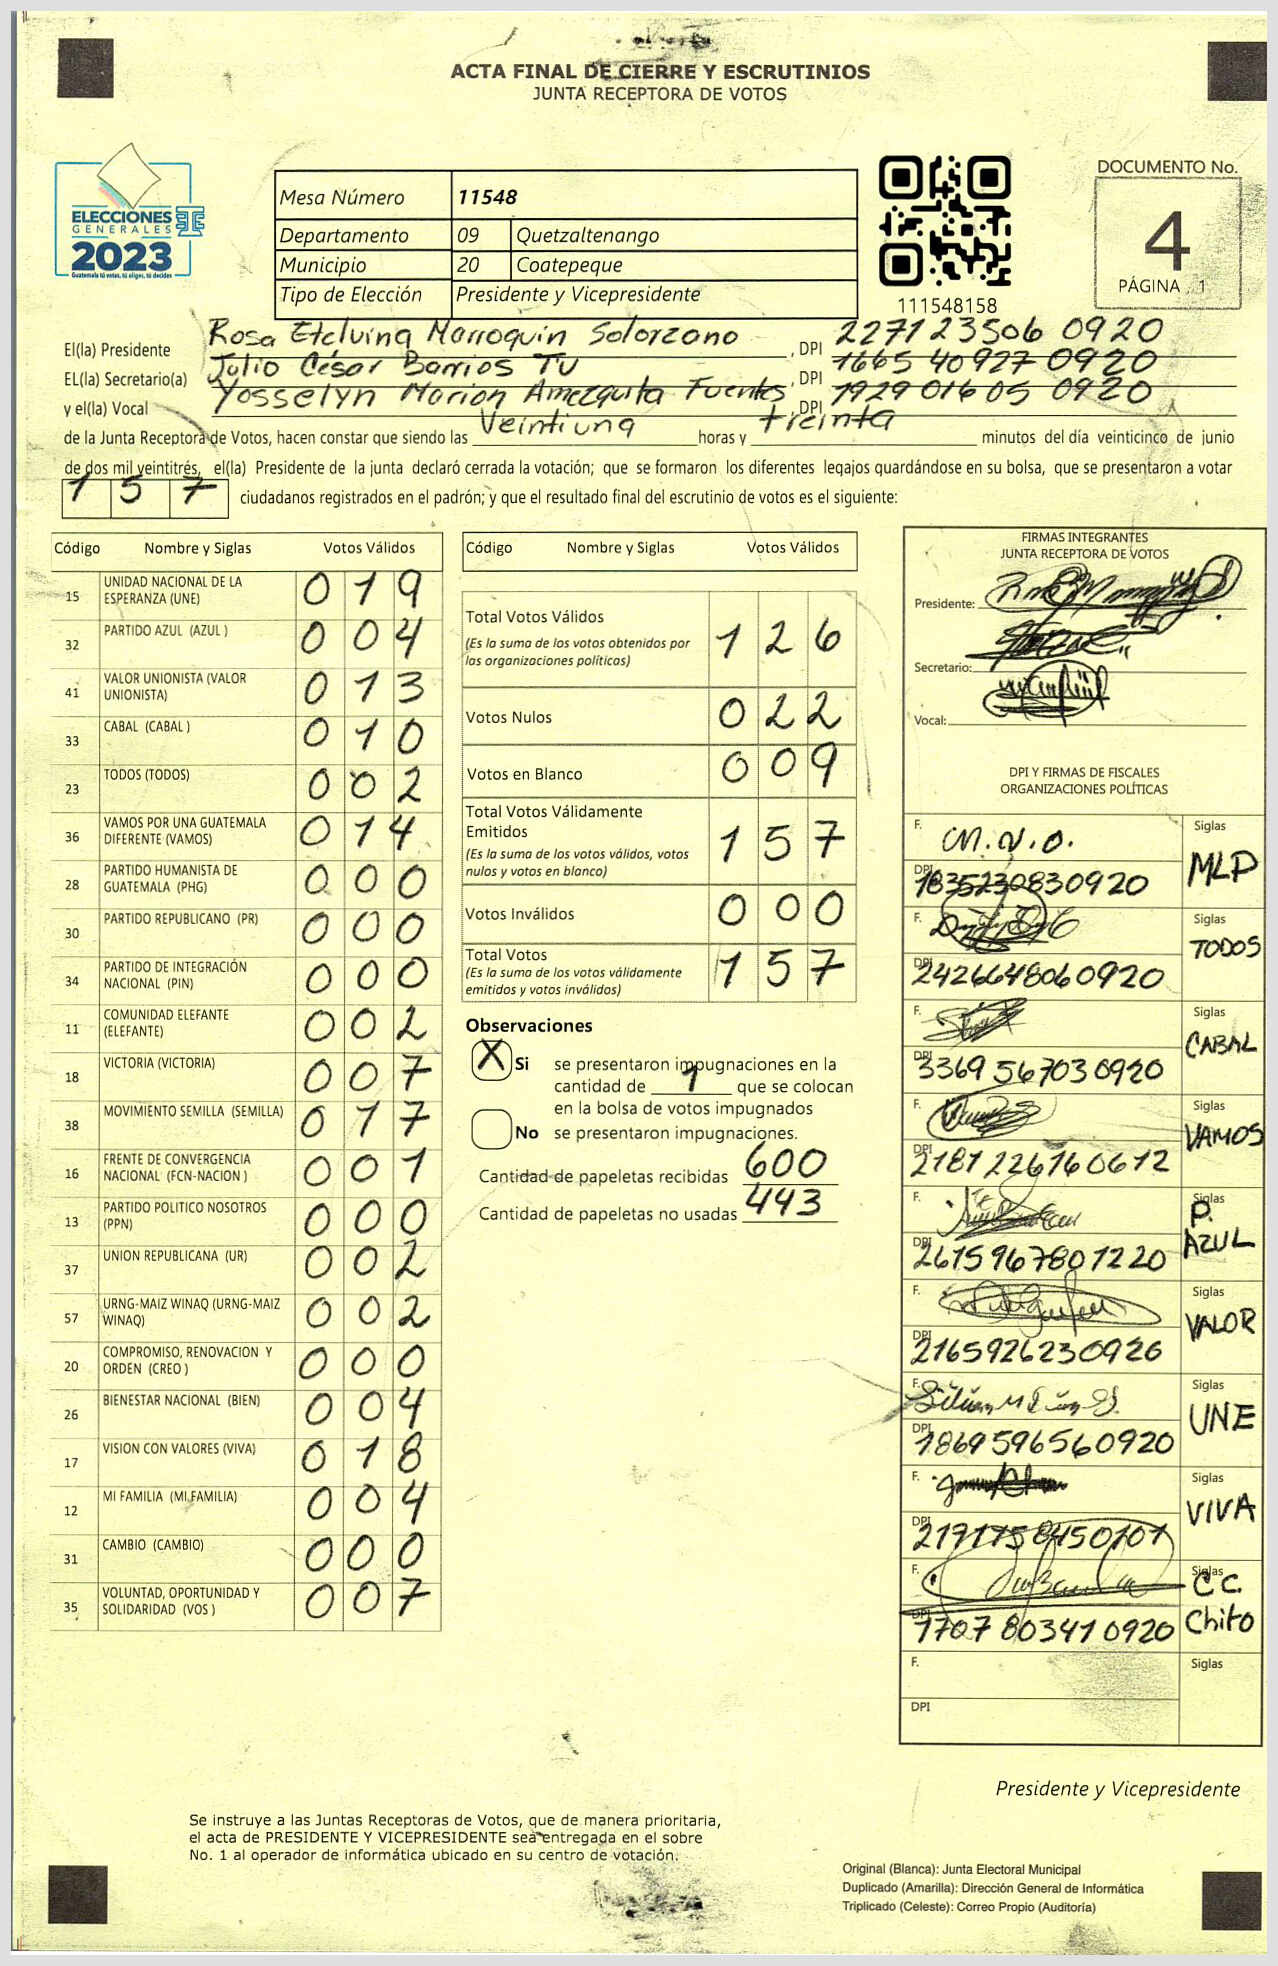 ACTA FINAL DE CIERRE Y ESCRUTINIOS
JUNTA RECEPTORA DE VOTOS
ELECCIONES
GENERALES
2023
Guatemala tú votas, tú eliges, tú decides
Mesa Número 11548
Departamento 09 Quetzaltenango
Municipio 20 Coatepeque
Tipo de Elección Presidente y Vicepresidente
111548158
DOCUMENTO No.
4
PÁGINA 1
El(la) Presidente Rosa Etelvina Marroquin Solorzano, DPI 2271 23506 0920
EL(la) Secretario(a) Julio César Barrios TU, DPI 1665 40927 0920
y el(la) Vocal Yosselyn Marion Amezquita Fuentes, DPI 1929 01605 0920
de la Junta Receptora de Votos, hacen constar que siendo las Veintiuna horas y treinta minutos del día veinticinco de junio
de dos mil veintitrés, el(la) Presidente de la junta declaró cerrada la votación; que se formaron los diferentes legajos quardándose en su bolsa, que se presentaron a votar
1 5 7 ciudadanos registrados en el padrón; y que el resultado final del escrutinio de votos es el siguiente:
Código Nombre y Siglas Votos Válidos
15 UNIDAD NACIONAL DE LA ESPERANZA (UNE) 0 1 9
32 PARTIDO AZUL (AZUL ) 0 0 4
41 VALOR UNIONISTA (VALOR UNIONISTA) 0 1 3
33 CABAL (CABAL ) 0 1 0
23 TODOS (TODOS) 0 0 2
36 VAMOS POR UNA GUATEMALA DIFERENTE (VAMOS) 0 1 4
28 PARTIDO HUMANISTA DE GUATEMALA (PHG) 0 0 0
30 PARTIDO REPUBLICANO (PR) 0 0 0
34 PARTIDO DE INTEGRACIÓN NACIONAL (PIN) 0 0 0
11 COMUNIDAD ELEFANTE (ELEFANTE) 0 0 2
18 VICTORIA (VICTORIA) 0 0 7
38 MOVIMIENTO SEMILLA (SEMILLA) 0 1 7
16 FRENTE DE CONVERGENCIA NACIONAL (FCN-NACION ) 0 0 1
13 PARTIDO POLITICO NOSOTROS (PPN) 0 0 0
37 UNION REPUBLICANA (UR) 0 0 2
57 URNG-MAIZ WINAQ (URNG-MAIZ WINAQ) 0 0 2
20 COMPROMISO, RENOVACION Y ORDEN (CREO ) 0 0 0
26 BIENESTAR NACIONAL (BIEN) 0 0 4
17 VISION CON VALORES (VIVA) 0 1 8
12 MI FAMILIA (MI FAMILIA) 0 0 4
31 CAMBIO (CAMBIO) 0 0 0
35 VOLUNTAD, OPORTUNIDAD Y SOLIDARIDAD (VOS ) 0 0 7
Código Nombre y Siglas Votos Válidos
Total Votos Válidos 1 2 6
(Es la suma de los votos obtenidos por
las organizaciones políticas)
Votos Nulos 0 2 2
Votos en Blanco 0 0 9
Total Votos Válidamente
Emitidos 1 5 7
(Es la suma de los votos válidos, votos
nulos y votos en blanco)
Votos Inválidos 0 0 0
Total Votos 1 5 7
(Es la suma de los votos válidamente
emitidos y votos inválidos)
Observaciones
X Si se presentaron impugnaciones en la
cantidad de 1 que se colocan
en la bolsa de votos impugnados
No se presentaron impugnaciones.
Cantidad de papeletas recibidas 600
Cantidad de papeletas no usadas 443
FIRMAS INTEGRANTES
JUNTA RECEPTORA DE VOTOS
Presidente:
Secretario:
Vocal:
DPI Y FIRMAS DE FISCALES
ORGANIZACIONES POLÍTICAS
F. M.V.O. Siglas MLP
DPI 1835230830920
F. Siglas TODOS
DPI 2426648060920
F. Siglas CABAL
DPI 3369 56703 0920
F. Siglas VAMOS
DPI 2181 22676 0612
F. Siglas P. AZUL
DPI 2615 96780 1220
F. Siglas VALOR
DPI 2165926230920
F. Siglas UNE
DPI 1869 59656 0920
F. Siglas VIVA
DPI 2171758450101
F. Siglas C.C. Chito
DPI 1707 80341 0920
F. Siglas
DPI
Presidente y Vicepresidente
Se instruye a las Juntas Receptoras de Votos, que de manera prioritaria,
el acta de PRESIDENTE Y VICEPRESIDENTE sea entregada en el sobre
No. 1 al operador de informática ubicado en su centro de votación.
Original (Blanca): Junta Electoral Municipal
Duplicado (Amarilla): Dirección General de Informática
Triplicado (Celeste): Correo Propio (Auditoría)